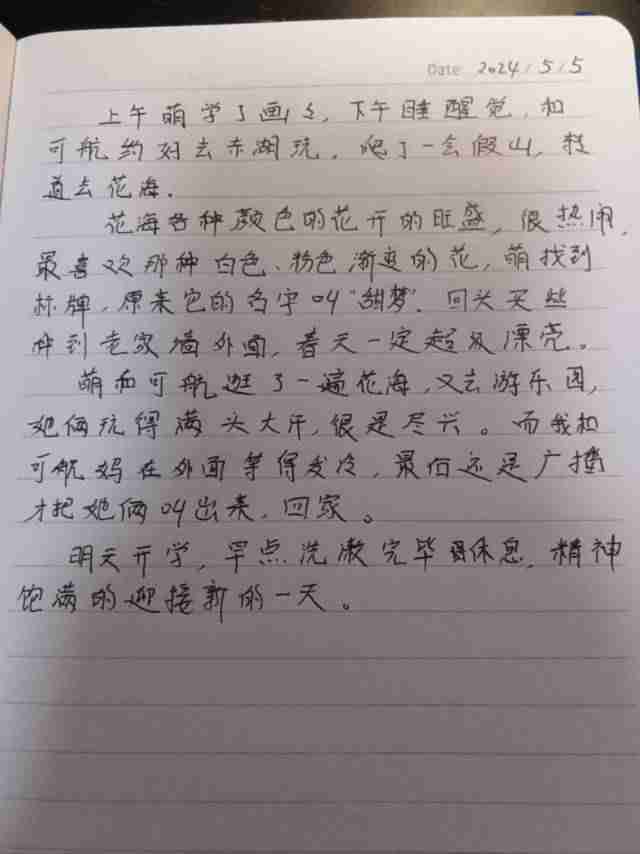 Date 2024/5/5
上午萌学了画画,下午睡醒觉,和
可航约好去东湖玩,爬了一会假山,接
道去花海.
花海各种颜色的花开的旺盛,很热闹,
最喜欢那种白色、粉色渐变的花,萌找到
标牌,原来它的名字叫"甜梦",回头买些
种到老家墙外面,春天一定超级漂亮。
萌和可航逛了一遍花海,又去游乐园,
她俩玩得满头大汗,很是尽兴。而我和
可航妈在外面等得发冷,最后还是广播
才把她俩叫出来,回家。
明天开学,早点洗漱完毕休息,精神
饱满的迎接新的一天。